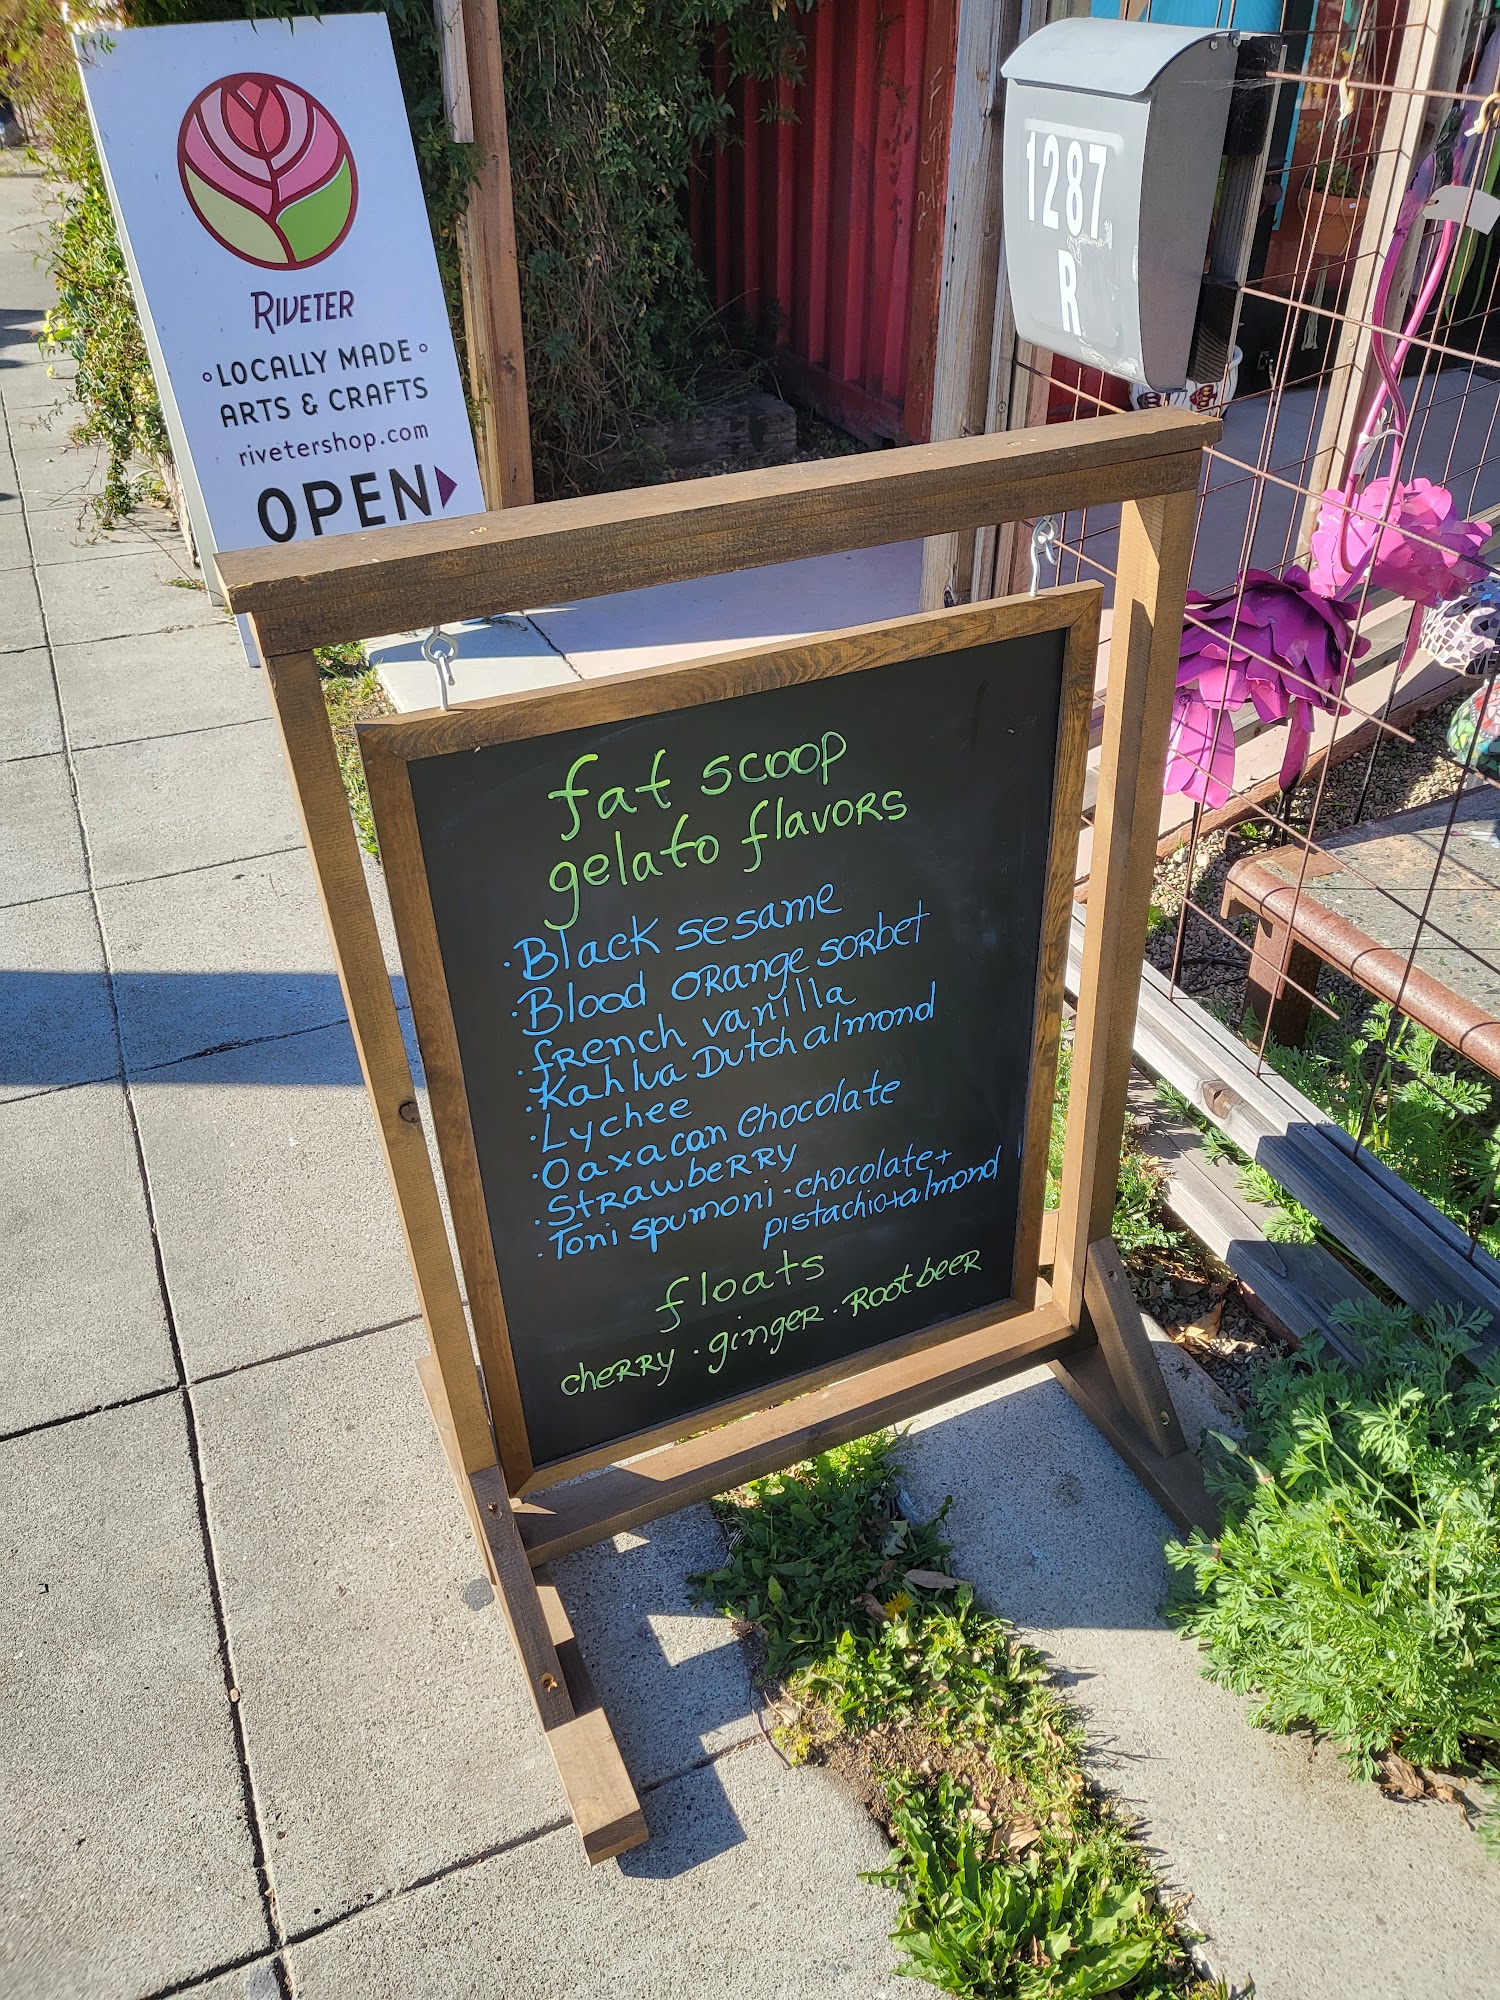 RIVETER
LOCALLY MADE
ARTS & CRAFTS
rivetershop.com
OPEN
1287
R
fat scoop
gelato flavors
· Black sesame
· Blood orange sorbet
· french vanilla
· Kahlua Dutch almond
· Lychee
· Oaxacan chocolate
· Strawberry
· Toni spumoni - chocolate +
pistachio + almond
floats
cherry · ginger · Root beer